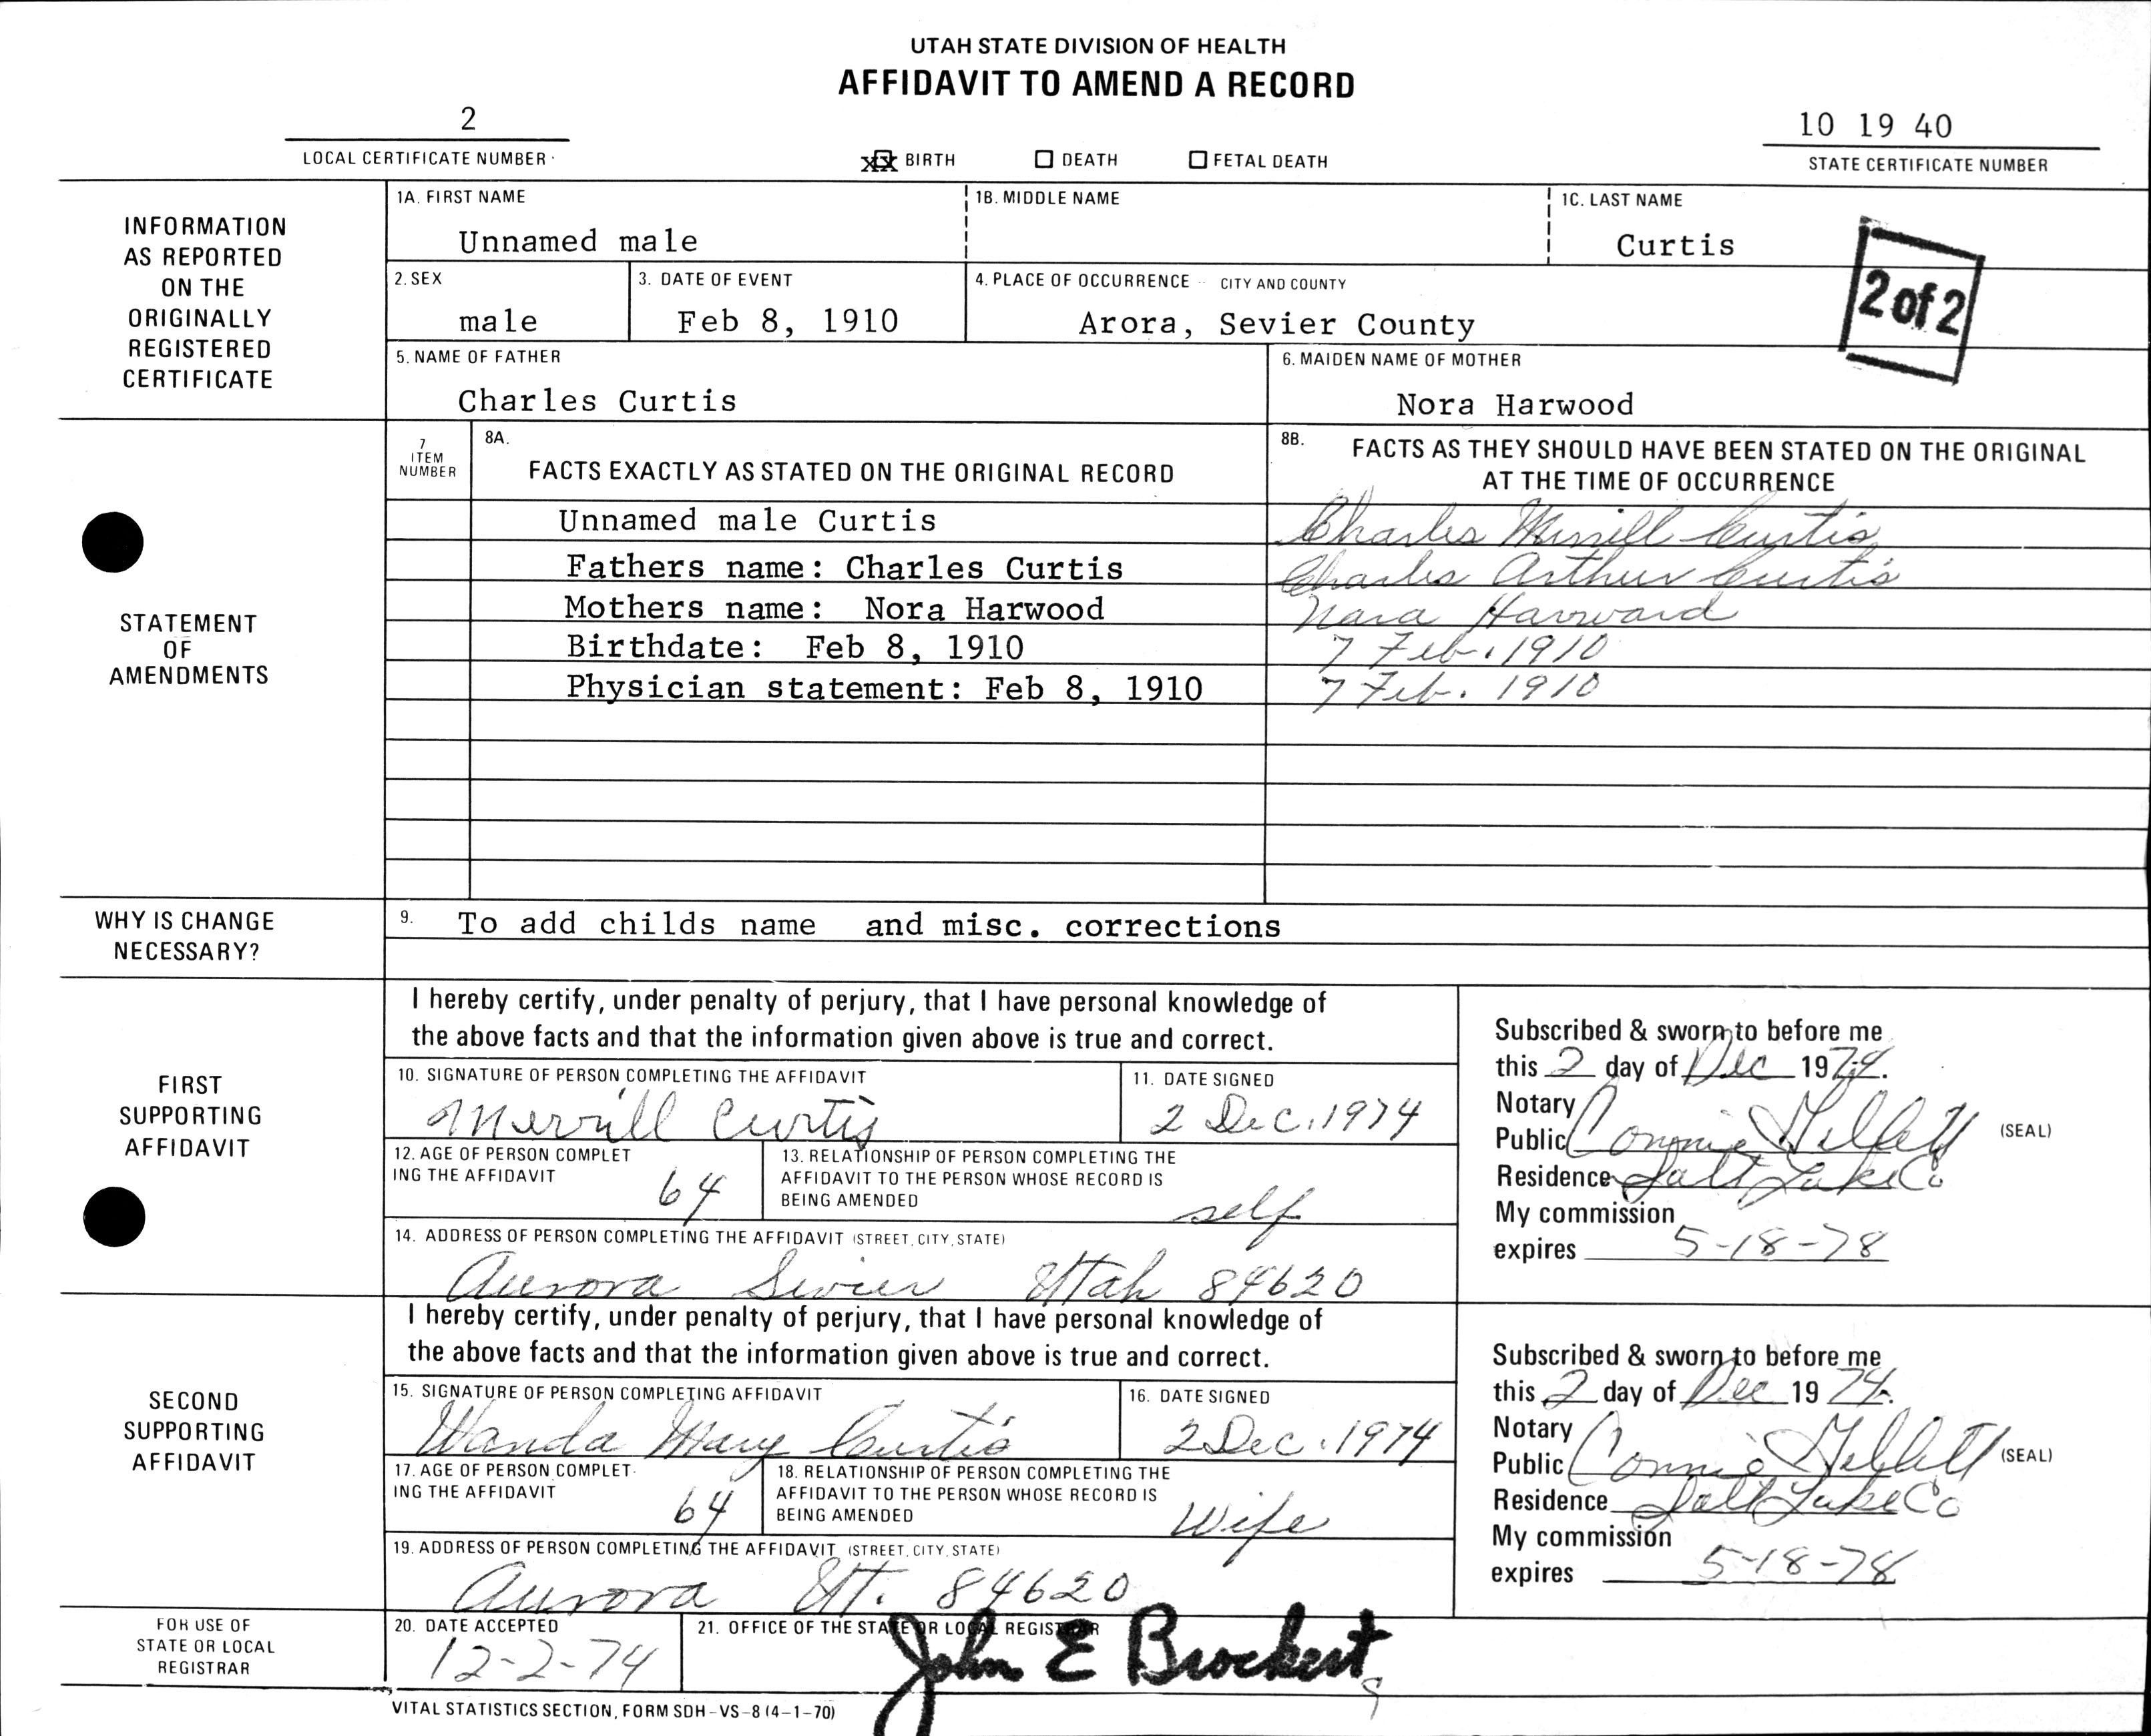 UTAH STATE DIVISION OF HEALTH
AFFIDAVIT TO AMEND A RECORD
2
10 19 40
LOCAL CERTIFICATE NUMBER
XX BIRTH DEATH FETAL DEATH
STATE CERTIFICATE NUMBER
INFORMATION
AS REPORTED
ON THE
ORIGINALLY
REGISTERED
CERTIFICATE
1A. FIRST NAME
Unnamed male
1B. MIDDLE NAME
1C. LAST NAME
Curtis
2 of 2
2. SEX
male
3. DATE OF EVENT
Feb 8, 1910
4. PLACE OF OCCURRENCE - CITY AND COUNTY
Arora, Sevier County
5. NAME OF FATHER
Charles Curtis
6. MAIDEN NAME OF MOTHER
Nora Harwood
STATEMENT
OF
AMENDMENTS
7
ITEM
NUMBER
8A.
FACTS EXACTLY AS STATED ON THE ORIGINAL RECORD
8B. FACTS AS THEY SHOULD HAVE BEEN STATED ON THE ORIGINAL
AT THE TIME OF OCCURRENCE
Unnamed male Curtis Charles Merrill Curtis
Fathers name: Charles Curtis Charles Arthur Curtis
Mothers name: Nora Harwood Nora Harward
Birthdate: Feb 8, 1910 7 Feb. 1910
Physician statement: Feb 8, 1910 7 Feb. 1910
WHY IS CHANGE
NECESSARY?
9. To add childs name and misc. corrections
FIRST
SUPPORTING
AFFIDAVIT
I hereby certify, under penalty of perjury, that I have personal knowledge of
the above facts and that the information given above is true and correct.
10. SIGNATURE OF PERSON COMPLETING THE AFFIDAVIT
Merrill Curtis
11. DATE SIGNED
2 Dec. 1974
12. AGE OF PERSON COMPLET
ING THE AFFIDAVIT
64
13. RELATIONSHIP OF PERSON COMPLETING THE
AFFIDAVIT TO THE PERSON WHOSE RECORD IS
BEING AMENDED
self
14. ADDRESS OF PERSON COMPLETING THE AFFIDAVIT (STREET, CITY, STATE)
Aurora Sevier Utah 84620
Subscribed & sworn to before me
this 2 day of Dec 1974.
Notary
Public Connie (SEAL)
Residence Salt Lake Co
My commission
expires 5-18-78
SECOND
SUPPORTING
AFFIDAVIT
I hereby certify, under penalty of perjury, that I have personal knowledge of
the above facts and that the information given above is true and correct.
15. SIGNATURE OF PERSON COMPLETING AFFIDAVIT
Wanda Mary Curtis
16. DATE SIGNED
2 Dec. 1974
17. AGE OF PERSON COMPLET-
ING THE AFFIDAVIT
64
18. RELATIONSHIP OF PERSON COMPLETING THE
AFFIDAVIT TO THE PERSON WHOSE RECORD IS
BEING AMENDED
Wife
19. ADDRESS OF PERSON COMPLETING THE AFFIDAVIT (STREET, CITY, STATE)
Aurora Ut. 84620
Subscribed & sworn to before me
this 2 day of Dec 1974.
Notary
Public Connie (SEAL)
Residence Salt Lake Co
My commission
expires 5-18-78
FOR USE OF
STATE OR LOCAL
REGISTRAR
20. DATE ACCEPTED
12-2-74
21. OFFICE OF THE STATE OR LOCAL REGISTRAR
John E Brockert
VITAL STATISTICS SECTION, FORM SDH-VS-8 (4-1-70)